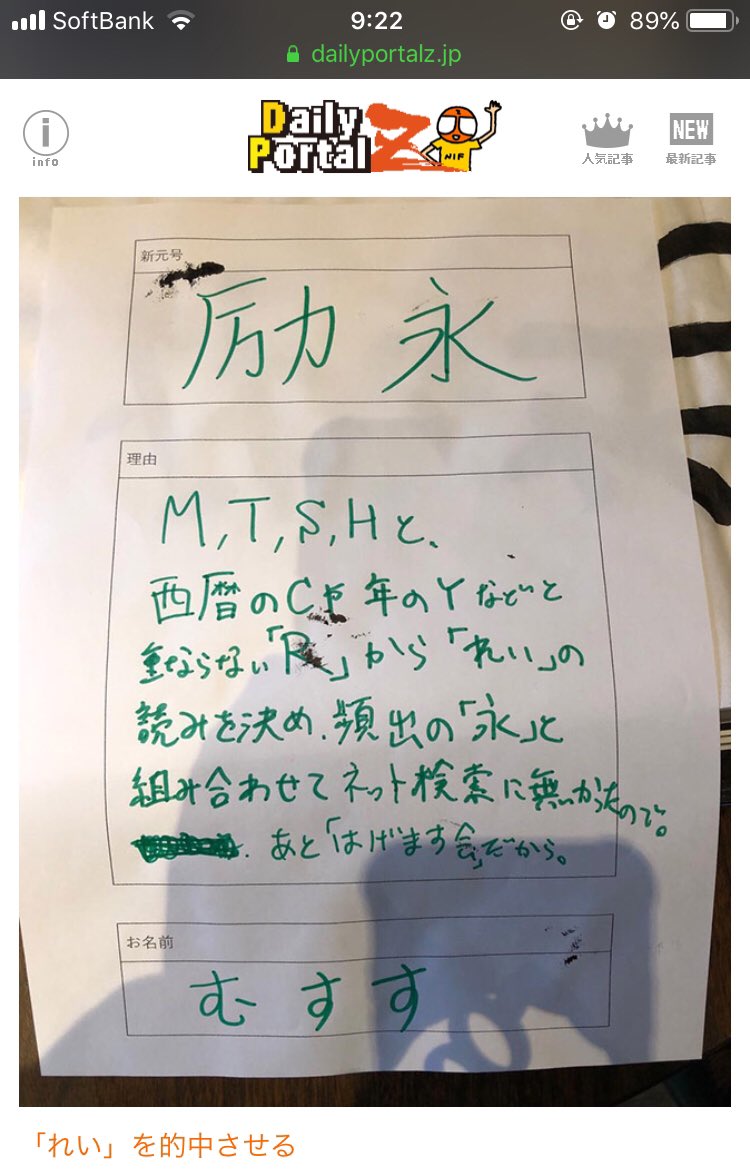 SoftBank 9:22 89%
dailyportalz.jp
info
Daily Portal Z
NIF
人気記事
NEW
最新記事
新元号
励永
理由
M,T,S,Hと、
西暦のCや年のYなどと
重ならない「R」から「れい」の
読みを決め、頻出の「永」と
組み合わせてネット検索に無かったので。
あと「はげます会」だから。
お名前
むすす
「れい」を的中させる